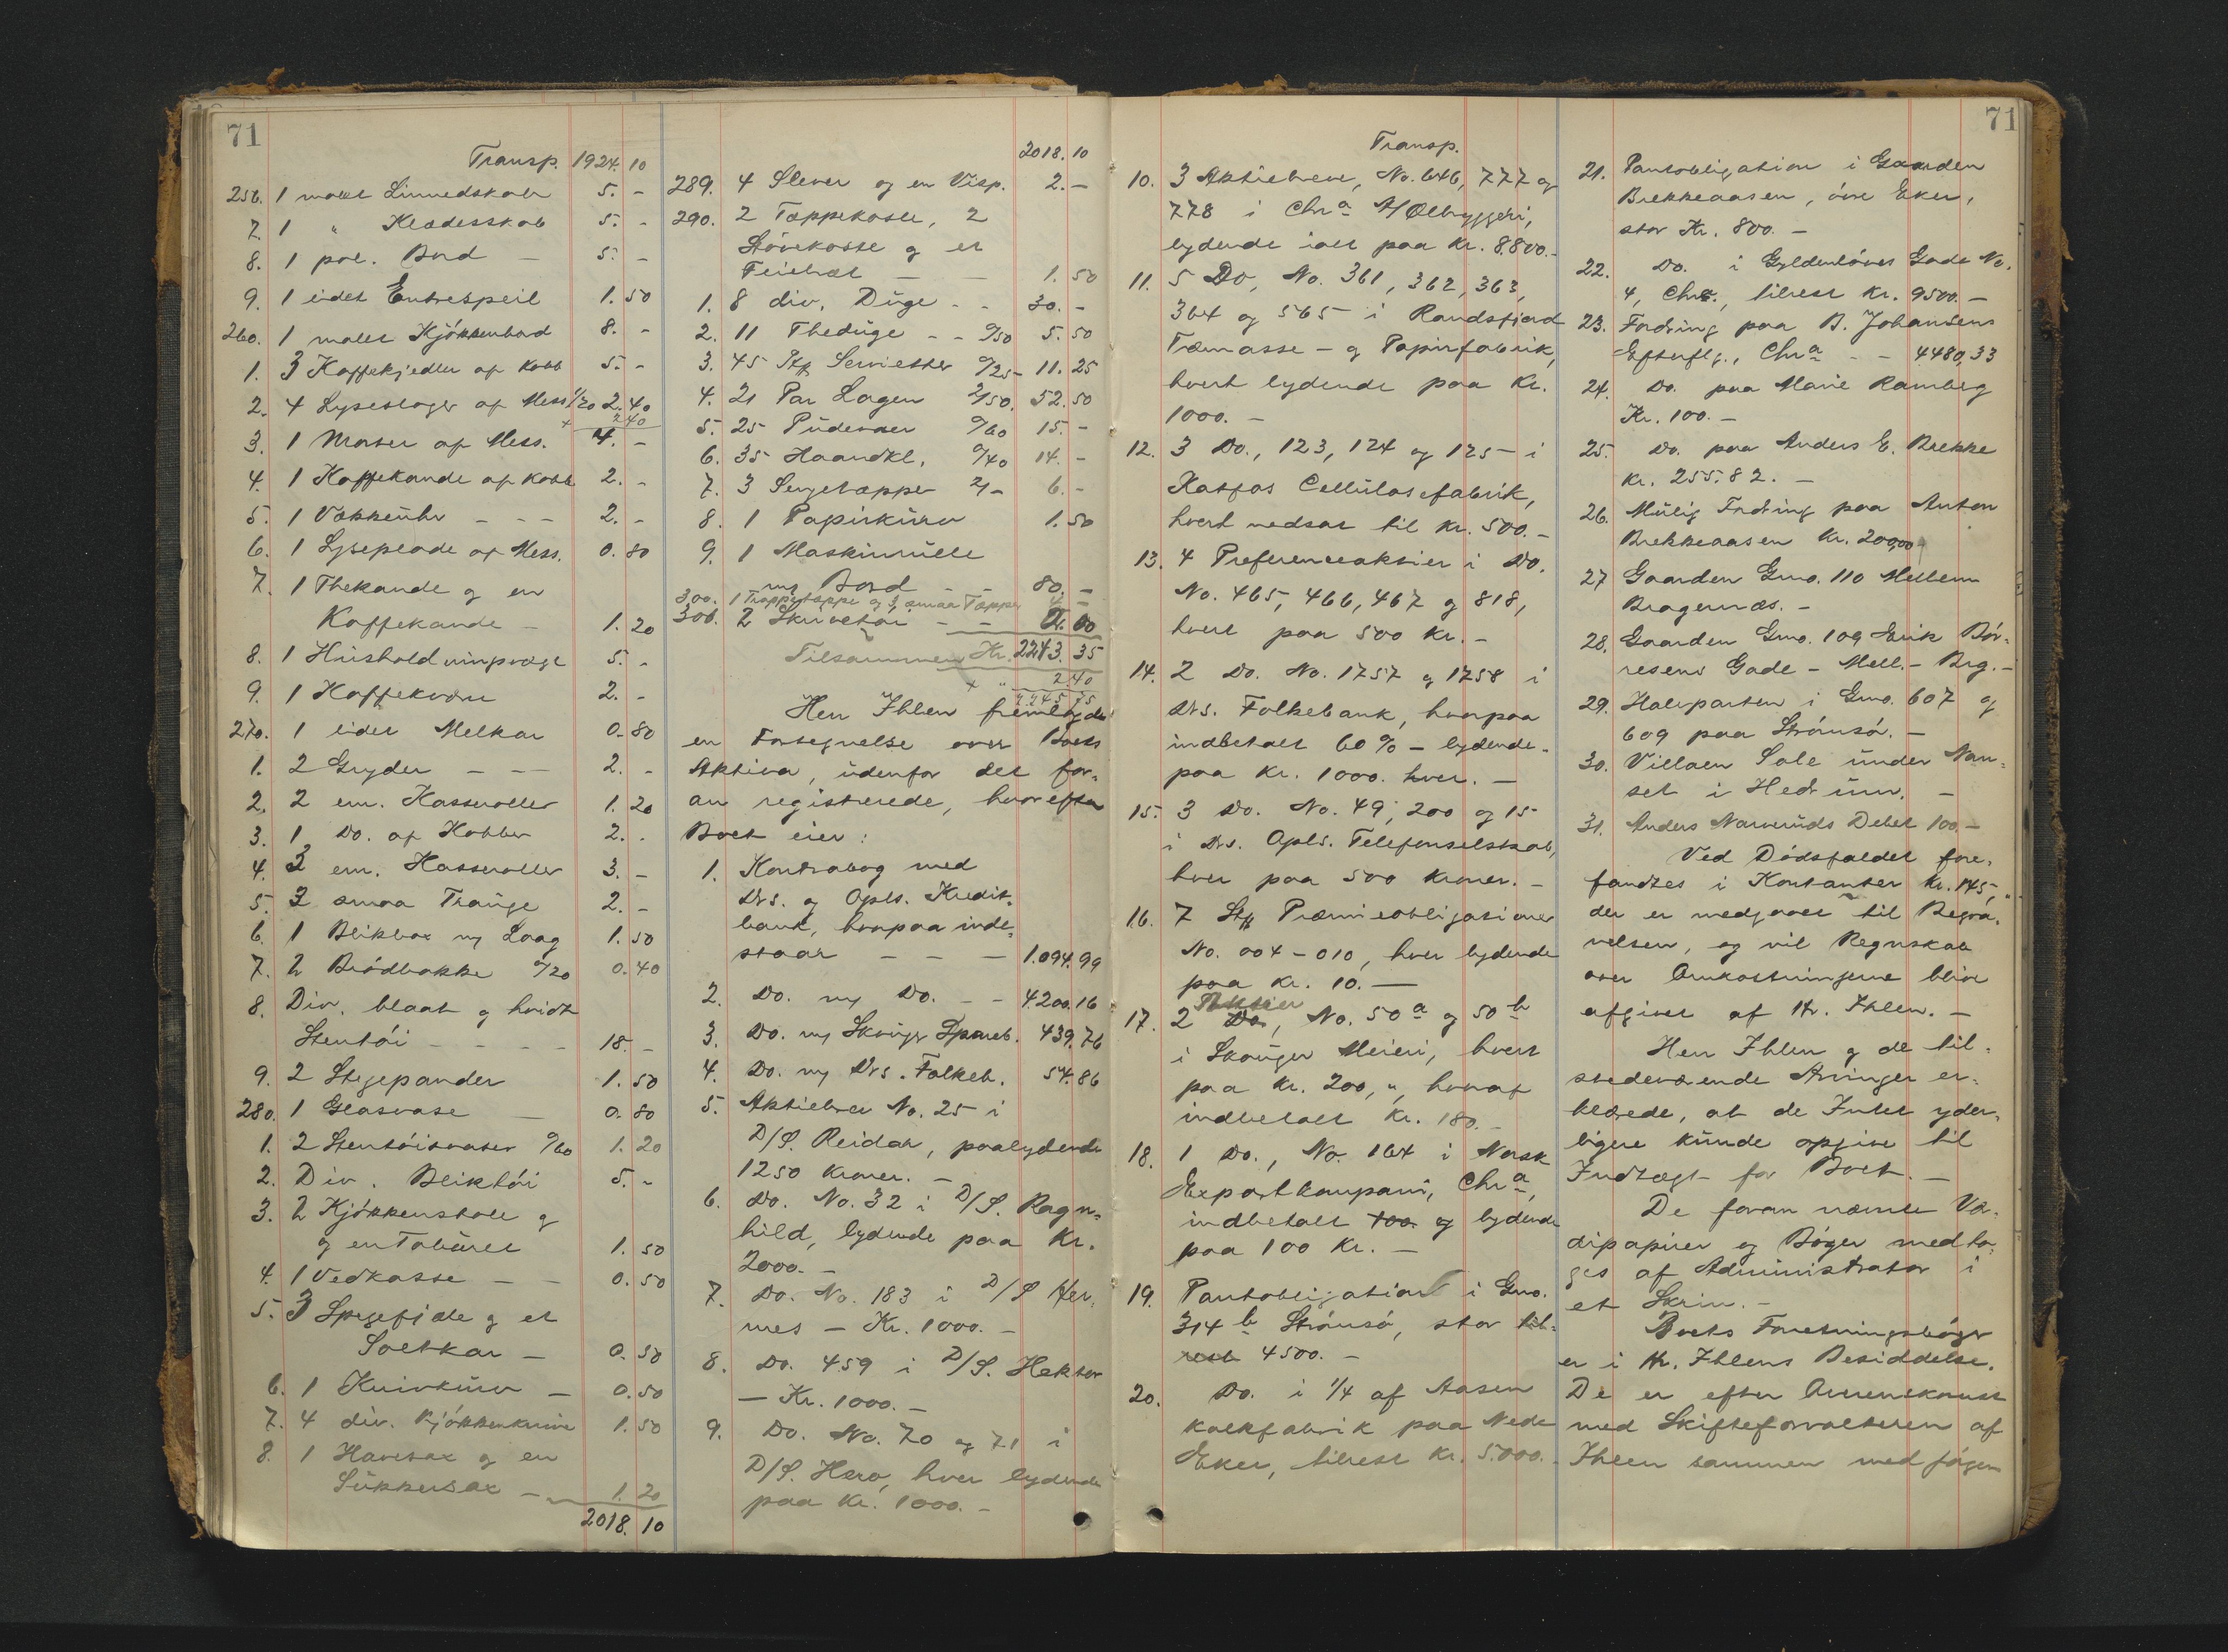 71
Transp. 1924.10
256. 1 malet Linnedskab 5.-
7. 1 " Klædesskab 5.-
8. 1 pol. Bord - 5.-
9. 1 lidet Entrespeil 1.50
260. 1 malet Kjøkkenbord 8.-
1. 3 Kaffekjedler af Kobb 5.-
2. 4 Lysestager af Mess 1/20 2.40
+ 2 40
3. 1 Morter af Mess. 4.-
4. 1 Kaffekande af Kobb 2.-
5. 1 Vækkeuhr - - - 2.-
6. 1 Lyseplade af Mess. 0.80
7. 1 Thekande og en
Kaffekande - 1.20
8. 1 Husholdningsvægt 5.-
9. 1 Kaffekværn 2.-
270. 1 lidet Melkar 0.80
1. 2 Gryder - - - 2.-
2. 2 em. Kasseroller 1.20
3. 1 Do. af Kobber 2.-
4. 3 em. Kasseroller 3.-
5. 3 smaa Trauge 2.-
6. 1 Blikbox m/ Laag 1.50
7. 2 Brødbakke 0/20 0.40
8. Div. blaat og hvidt
Stentøi - - - - 18.-
9. 2 Stegepander 1.50
280. 1 Glasvase - 0.80
1. 2 Stentøisvaser 0/60 1.20
2. Div. Bliktøi 5.-
3. 2 Kjøkkenstole og
og en Taburet 1.50
4. 1 Vedkasse - - 0.50
5. 3 Spegefjæle og et
Saltkar - 0.50
6. 1 Knivkurv - 0.50
7. 4 div. Kjøkkenknive 1.50
8. 1 Havesax og en
Sukkersax - 1.20
2018.10
2018.10
289. 4 Slever og en Visp. 2.-
290. 2 Tæppekoste, 2
Støvekoste og et
Feiebræt - - 1.50
1. 8 div. Duge - - 30.-
2. 11 Theduge - - 0/50 5.50
3. 45 Stk Servietter 0/25 11.25
4. 21 Par Lagen 2/50. 52.50
5. 25 Pudevaer 0/60 15.-
6. 35 Haandkl. 0/40 14.-
7. 3 Sengetæpper 2/- 6.-
8. 1 Papirkurv 1.50
9. 1 Maskinrulle
m/ Bord - 80.-
300. 1 Trappetæppe og 3 smaa Tæpper
306. 2 Skrivetøi - -
Tilsammen Kr. 2243.35
+ " 2 40
2245 75
Herr Ihlen fremlagde
en Fortegnelse over Boets
Aktiva, udenfor det for-
an registrerede, hvorefter
Boet eier:
1. Kontrabog med
Drs. og Opls. Kredit-
bank, hvorpaa inde-
staar - - - 1.094.99
2. Do. m/ Do. - - 4.200.16
3. Do. m/ Skouger Spareb. 439.76
4. Do. m/ Drs. Folkeb. 54.86
5. Aktiebrev No. 25 i
D/S. Reidar, paalydende
1250 kroner. -
6. Do. No. 32 i D/S. Ragn-
hild, lydende paa Kr.
2000. -
7. Do. No. 183 i D/S Her-
mes - Kr. 1000. -
8. Do. 459 i D/S. Hektor
- Kr. 1000. -
9. Do. No. 70 og 71 i
D/S. Hero, hver lydende
paa Kr. 1000. -
71
Transp.
10. 3 Aktiebreve, No. 646, 777 og
778 i Chra A/ Ølbryggeri,
lydende ialt paa Kr. 8.800.-
11. 5 Do, No. 361, 362, 363,
364 og 565 i Randsfjord
Træmasse- og Papirfabrik,
hvert lydende paa Kr.
1000. -
12. 3 Do., 123, 124 og 125 i
Katfos Cellulosefabrik,
hvert nedsat til Kr. 500. -
13. 4 Preferenceaktier i Do.
No. 465, 466, 467 og 818,
hvert paa 500 Kr. -
14. 2 Do. No. 1757 og 1758 i
Drs. Folkebank, hvorpaa
indbetalt 60 % - lydende
paa Kr. 1000. hver. -
15. 3 Do. No. 49, 200 og 15
i Drs. Opls. Telefonselskab,
hver paa 500 kroner. -
16. 7 Stk Præmieobligationer
No. 004-010, hver lydende
paa Kr. 10. -
Aktier
17. 2 Do, No. 50a og 50b
i Skouger Meieri, hvert
paa Kr. 200,", hvoraf
indbetalt Kr. 180. -
18. 1 Do., No. 164 i Norsk
Exportkompani, Chra,
indbetalt 100 og lydende
paa 100 Kr. -
19. Pantobligation i Gmo.
314 b Strømsø, stor til-
rest 4500. -
20. Do. i 1/4 af Aasen
Kalkfabrik paa Nedre
Eker, tilrest Kr. 5.000. -
21. Pantobligation i Gaarden
Brekkeaasen, øvre Eker,
stor Kr. 800. -
22. Do. i Gyldenløves Gade No.
4, Chra., tilrest Kr. 9500. -
23. Fordring paa B. Johansens
Efterflg., Chra - - 4480,33
24. Do. paa Marie Ramberg
Kr. 100. -
25. Do. paa Anders E. Brekke
Kr. 255.82. -
26. Mulig Fordring paa Anton
Brekkeaasen Kr. 200,00
27 Gaarden Gmo. 110 Mellem
Bragernæs. -
28. Gaarden Gmo. 109 Erik Bør-
resens Gade - Mell.- Brg. -
29. Halvparten i Gmo. 607 og
609 paa Strømsø. -
30. Villaen Sole under Nan-
set i Hedrum. -
31. Anders Narveruds Debet 100.-
Ved Dødsfaldet fore-
fandtes i Kontanter Kr. 145,"
der er medgaaet til Begra-
velsen, og vil Regnskab
over Omkostningerne blive
afgivet af Hr. Ihlen. -
Herr Ihlen og de til-
stedeværende Arvinger er-
klærede, at de Intet yder-
ligere kunde opgive til
Indtægt for Boet. -
De foran nævnte Vær-
dipapirer og Bøger medto-
ges af Administrator i
et Skrin. -
Boets Forretningsbøger
er i Hr. Ihlens Besiddelse.
De er efter Overenskomst
med Skifteforvalteren af
Ihlen sammen med